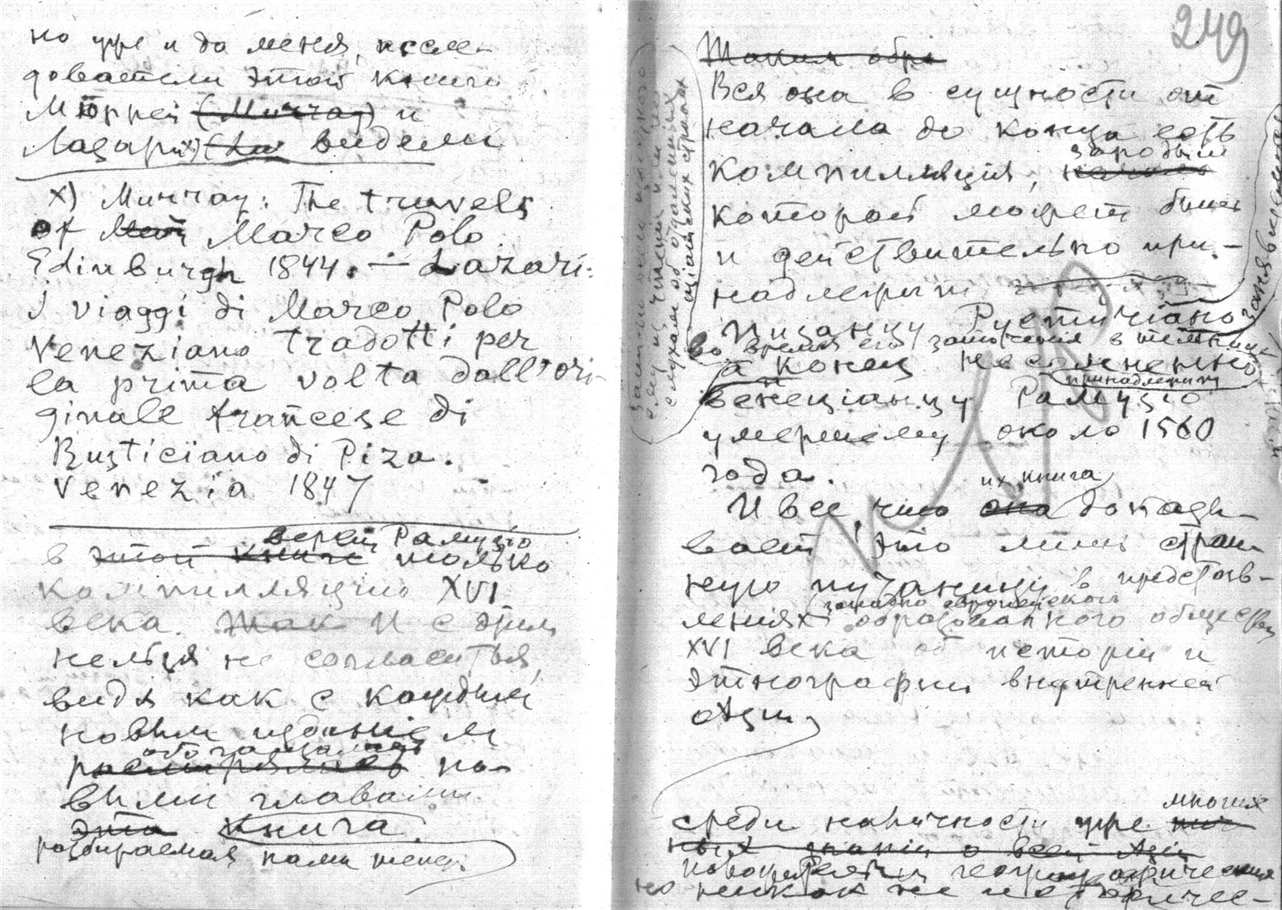 но уже и до меня, иссле-
дователи этой книги
Мюррей (Murray) и
Лазари x) (La видели
x) Murray: The travels
of Marco Polo
Edinburgh 1844. — Lazari:
I viaggi di Marco Polo
Veneziano tradotti per
la prima volta dall'ori-
ginale francese di
Rusticiano di Piza.
Venezia 1847
версіи Рамузіо
в этой книге только
компилляцию XVI
века. Так И с этим
нельзя не согласиться,
видя как с каждым
новым изданіем
обогащалась
растрялась но-
выми главами
эта книга
разбираемая нами теперь
249
Таким обра
Вся она в сущности от
начала до конца есть
зародыш
компиляция, начало
которой может быть
и действительно при-
надлежит
Пизанцу Рустичіано
во время его заточения в темнице
а конец несомненно
принадлежит
венеціанцу Рамузіо
умершему около 1560
года.
их книга
И все, что она показы-
вает, это лишь стран-
ную путаницу в представ-
западно европейского
лениях образованного общества
XVI века об исторіи и
этнографии внутренней
Азіи,
многих
среди наличности уже
ных знаній о всей Азіи
географических
но никак не историчес-